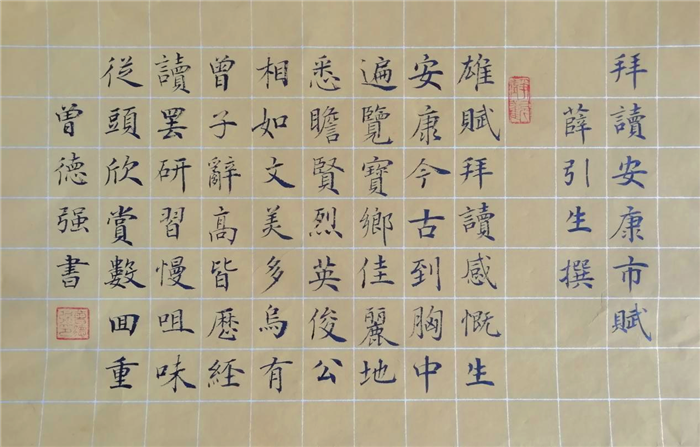 拜讀安康市賦
薛引生撰
雄賦拜讀感慨生
安康今古到胸中
遍覽寶鄉佳麗地
悉瞻賢烈英俊公
相如文美多烏有
曾子辭高皆歷經
讀罷研習慢咀味
從頭欣賞數回重
曾德强書